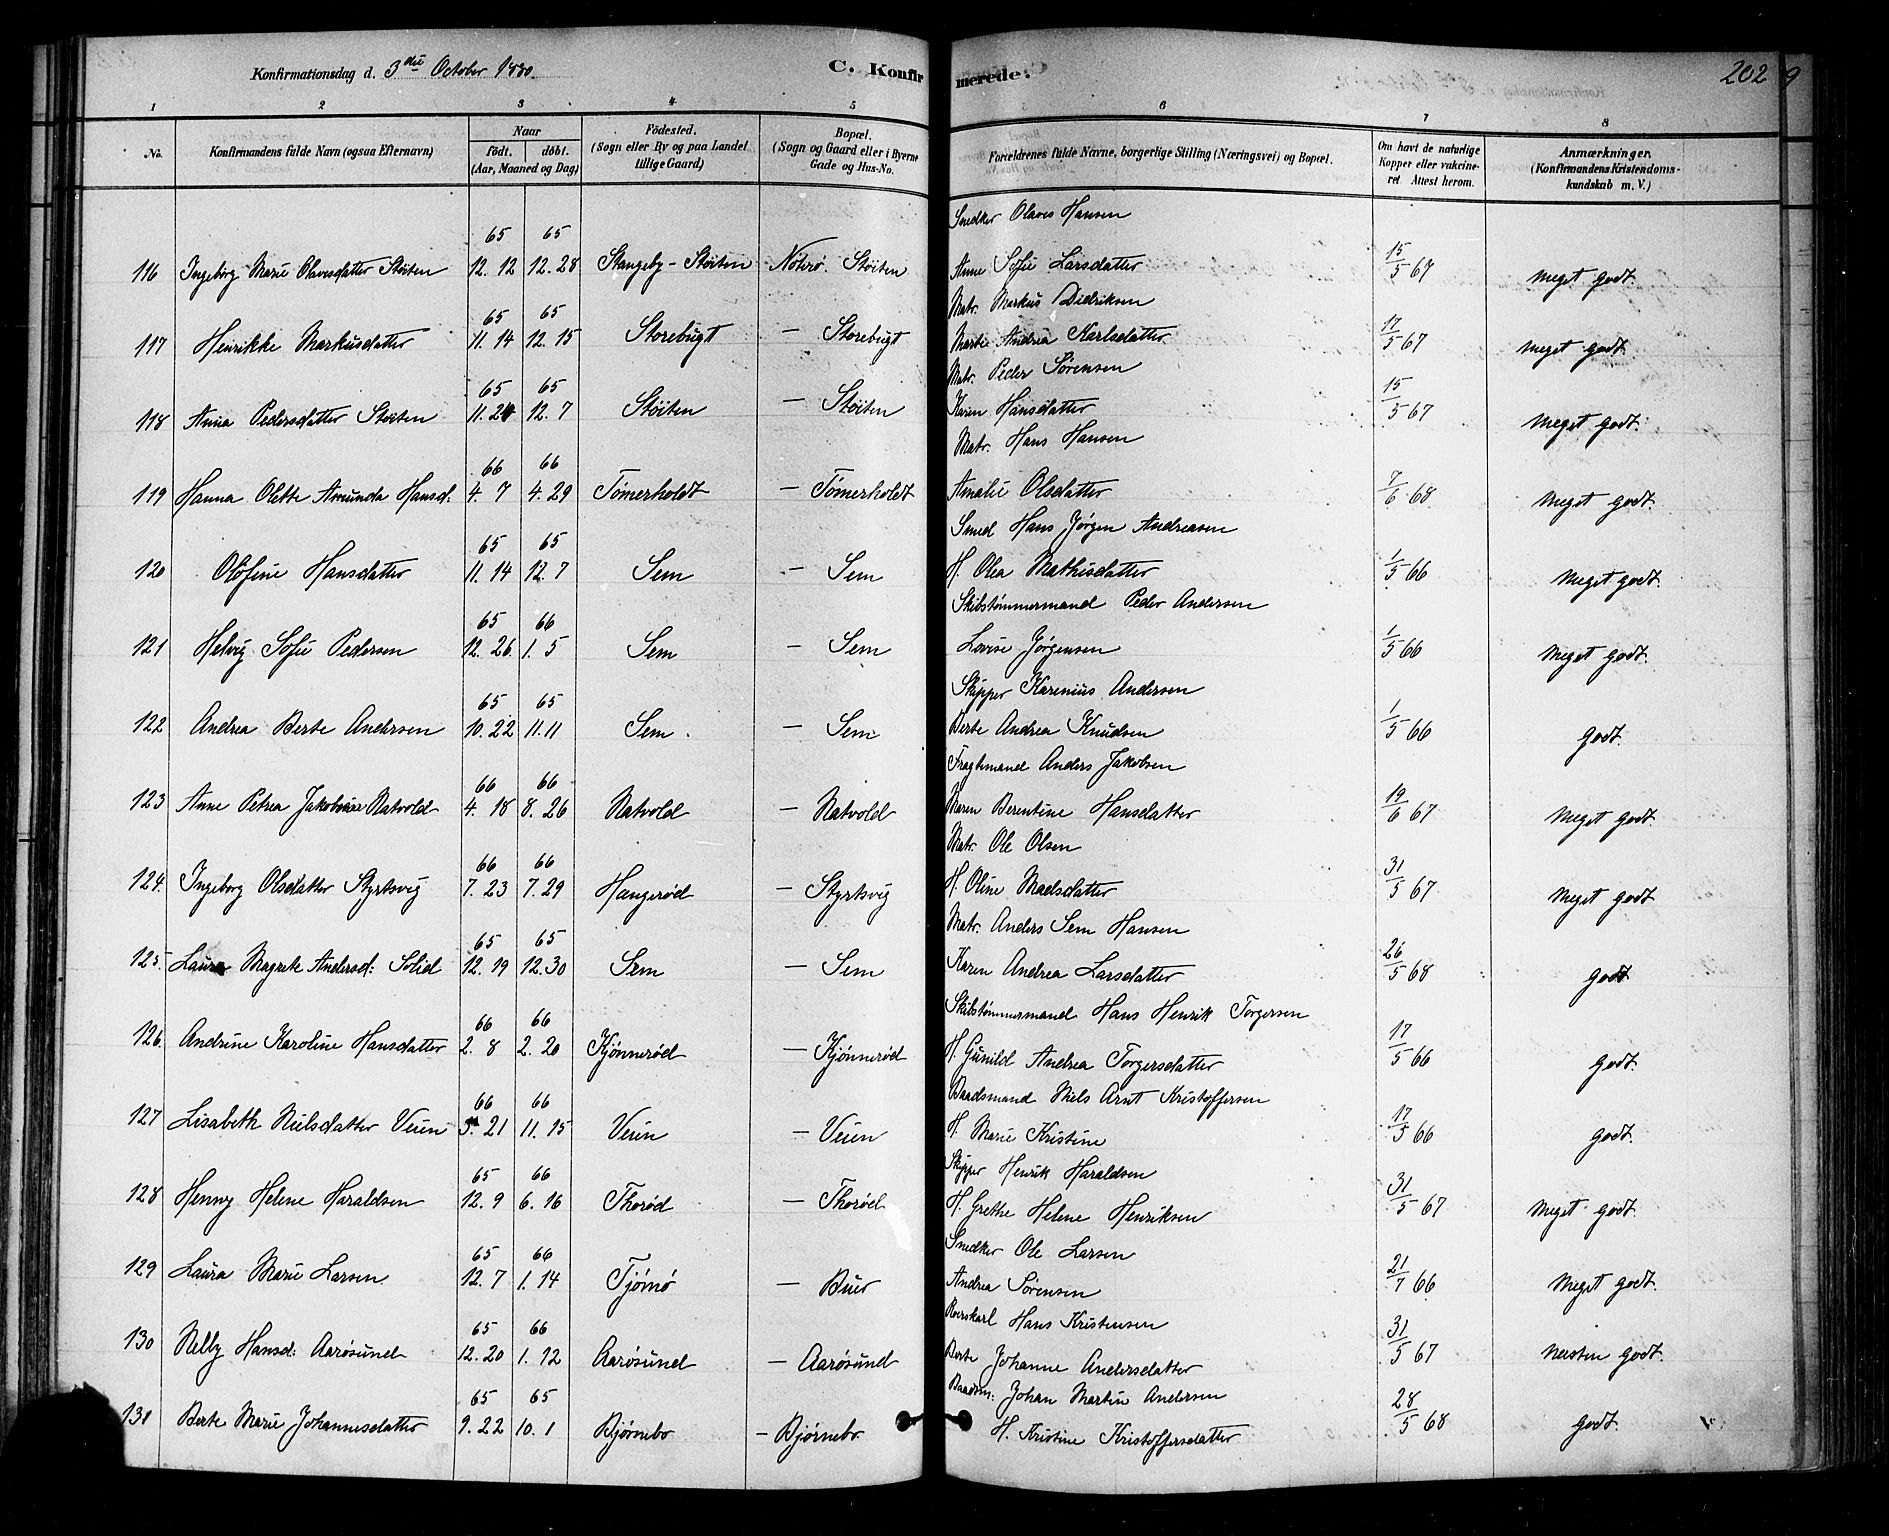 Konfirmationsdag d. 3die October 1880. C. Konfirmerede. 202
1 2 3 4 5 6 7 8
No. Konfirmandens fulde Navn (ogsaa Efternavn) Naar født. døbt. (Aar, Maaned og Dag) Fødested. (Sogn eller By og paa Landet tillige Gaard) Bopæl. (Sogn og Gaard eller i Byerne Gade og Hus-No. Forældrenes fulde Navne, borgerlige Stilling (Næringsvei) og Bopæl. Om havt de naturlige Kopper eller vakcineret Attest herom. Anmærkninger. (Konfirmandens Kristendomskundskab m. V.)
65 65 Snedker Olaves Hansen
116 Ingeborg Marie Olavesdatter Støiten 12. 12 12. 28 Stangeby - Støiten Nøterø. Støiten Anne Sofie Larsdatter 15/5 67 Meget godt.
65 65 Matr. Markus Didriksen
117 Henrikke Markusdatter 11. 14 12. 15 Storebugt — Storebugt Marte Andrea Karlsdatter 17/5 67 Meget godt
65 65 Matr. Peder Sørensen
118 Anna Pedersdatter Støiten 11. 24 12. 7 Støiten — Støiten Karen Hansdatter 15/5 67 Meget godt.
66 66 Matr. Hans Hansen
119 Hanna Olette Amunda Hansd: 4. 7 4. 29 Tømerholdt — Tømerholdt Amalie Olsdatter 7/6 68 Meget godt.
65 65 Smed Hans Jørgen Andreasen
120 Olofine Hansdatter 11. 14 12. 7 Sem — Sem H. Olea Mathisdatter 1/5 66 Meget godt.
65 66 Skibstømmermand Peder Andersen
121 Helvig Sofie Pedersen 12. 26. 1. 5 Sem — Sem Lovise Jørgensen 1/5 66 Meget godt.
65 65 Skipper Karenius Andersen
122 Andrea Berte Andersen 10. 22 11. 11 Sem. — Sem Berte Andrea Knudsen 1/5 66 godt.
66 66 Fragtmand Anders Jakobsen
123 Anne Petrea Jakobine Natvold 4. 18 8. 26 Natvold — Natvold Karen Berentine Hansdatter 19/6 67 Meget godt.
66 66 Matr. Ole Olsen
124. Ingeborg Olsdatter Styrtsvig 7. 23 7. 29 Haugerød — Styrtsvig H. Oline Madsdatter 31/5 67 Meget godt
65 65 Matr. Anders Sem Hansen
125. Laura Magrete Andersd: Solid 12. 19 12. 30 Sem — Sem Karen Andrea Larsdatter 26/5 68 godt
66 66 Skibstømmermand Hans Henrik Torgersen
126. Andrine Karoline Hansdatter 2. 8 2. 20 Kjønnerød — Kjønnerød H. Gunild Andrea Torgersdatter 17/5 66 godt.
66 66 Baadsmand Niels Arnt Kristoffersen
127 Lisabeth Nielsdatter Veien 5. 21 11. 15 Veien — Veien H. Marie Kristine 17/5 66 godt.
65 66 Skipper Henrik Haraldsen
128 Henny Helene Haraldsen 12. 9 6. 16 Thorød — Thorød H. Grethe Helene Henriksen 31/5 67 Meget godt.
65 66 Snedker Ole Larsen
129 Laura Marie Larsen 12. 7 1. 14 Tjømø — Buer Andrea Sørensen 21/7 66 Meget godt.
65 66 Hans Kristensen
130 Nelly Hansd: Aarøsund 12. 20 1. 12 Aarøsund — Aarøsund Berte Johanne Andersdatter 31/5 67 næsten godt.
65 65 Baadsm: Johan Martin Andersen
131 Berte Marie Johannesdatter 9. 22 10. 1 Bjørnebo — Bjørnebo. H. Kristine Kristoffersdatter 28/5 68 godt.